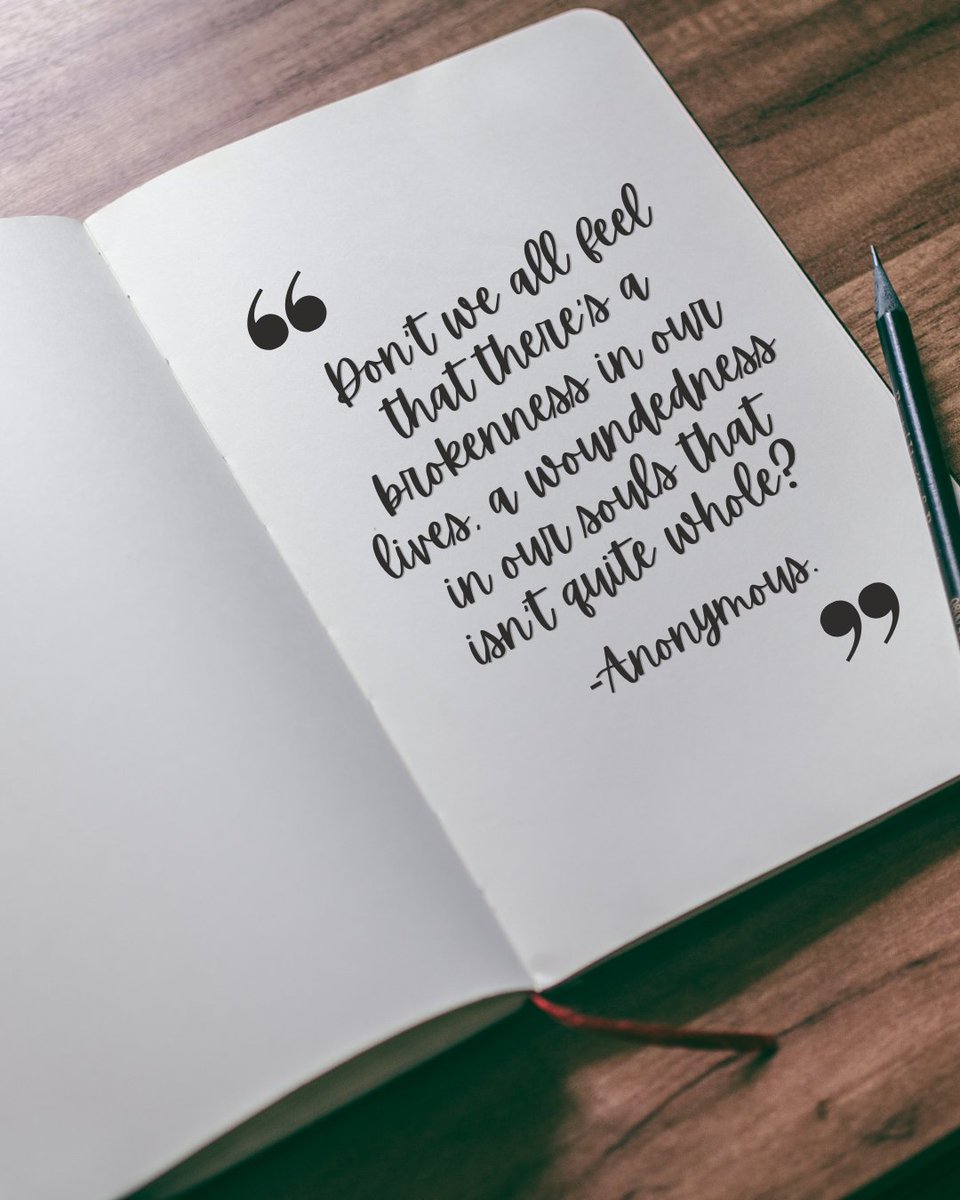 “
Don't we all feel
that there's a
brokenness in our
lives, a woundedness
in our souls that
isn't quite whole?
-Anonymous.
”